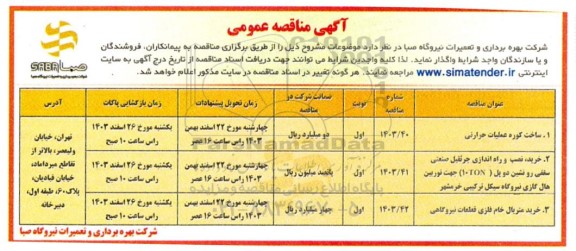 آگهی مناقصه عمومی
صبا
SABA
شرکت بهره برداری و تعمیرات نیروگاه صبا در نظر دارد موضوعات مشروح ذیل را از طریق برگزاری مناقصه به پیمانکاران، فروشندگان
و یا سازندگان واجد شرایط واگذار نماید. لذا کلیه واجدین شرایط می توانند جهت دریافت اسناد مناقصه از تاریخ درج آگهی به سایت
اینترنتی www.simatender.ir مراجعه نمایند. هر گونه تغییر در اسناد مناقصه در سایت مذکور اعلام خواهد شد.
عنوان مناقصه
شماره مناقصه
نوبت
ضمانت شرکت در مناقصه
زمان تحویل پیشنهادات
زمان بازگشایی پاکات
آدرس
۱. ساخت کوره عملیات حرارتی
۱۴۰۳/۴۰
اول
دو میلیارد ریال
چهارشنبه مورخ ۲۲ اسفند بهمن
۱۴۰۳ راس ساعت ۱۶ عصر
یکشنبه مورخ ۲۶ اسفند ۱۴۰۳
راس ساعت ۱۰ صبح
۲. خرید، نصب و راه اندازی جرثقیل صنعتی
سقفی رو نشین دو پل (۱۰TON) جهت توربین
هال گازی نیروگاه سیکل ترکیبی خرمشهر
۱۴۰۳/۴۱
اول
پانصد میلیون ریال
چهارشنبه مورخ ۲۲ اسفند بهمن
۱۴۰۳ راس ساعت ۱۶ عصر
یکشنبه مورخ ۲۶ اسفند ۱۴۰۳
راس ساعت ۱۰ صبح
۳. خرید متریال خام فلزی قطعات نیروگاهی
۱۴۰۳/۴۲
اول
چهار میلیارد ریال
چهارشنبه مورخ ۲۲ اسفند بهمن
۱۴۰۳ راس ساعت ۱۶ عصر
یکشنبه مورخ ۲۶ اسفند ۱۴۰۳
راس ساعت ۱۰ صبح
تهران، خیابان
ولیعصر، بالاتر از
تقاطع میرداماد،
خیابان قبادیان،
پلاک ۶۰، طبقه اول،
دبیرخانه
شرکت بهره برداری و تعمیرات نیروگاه صبا